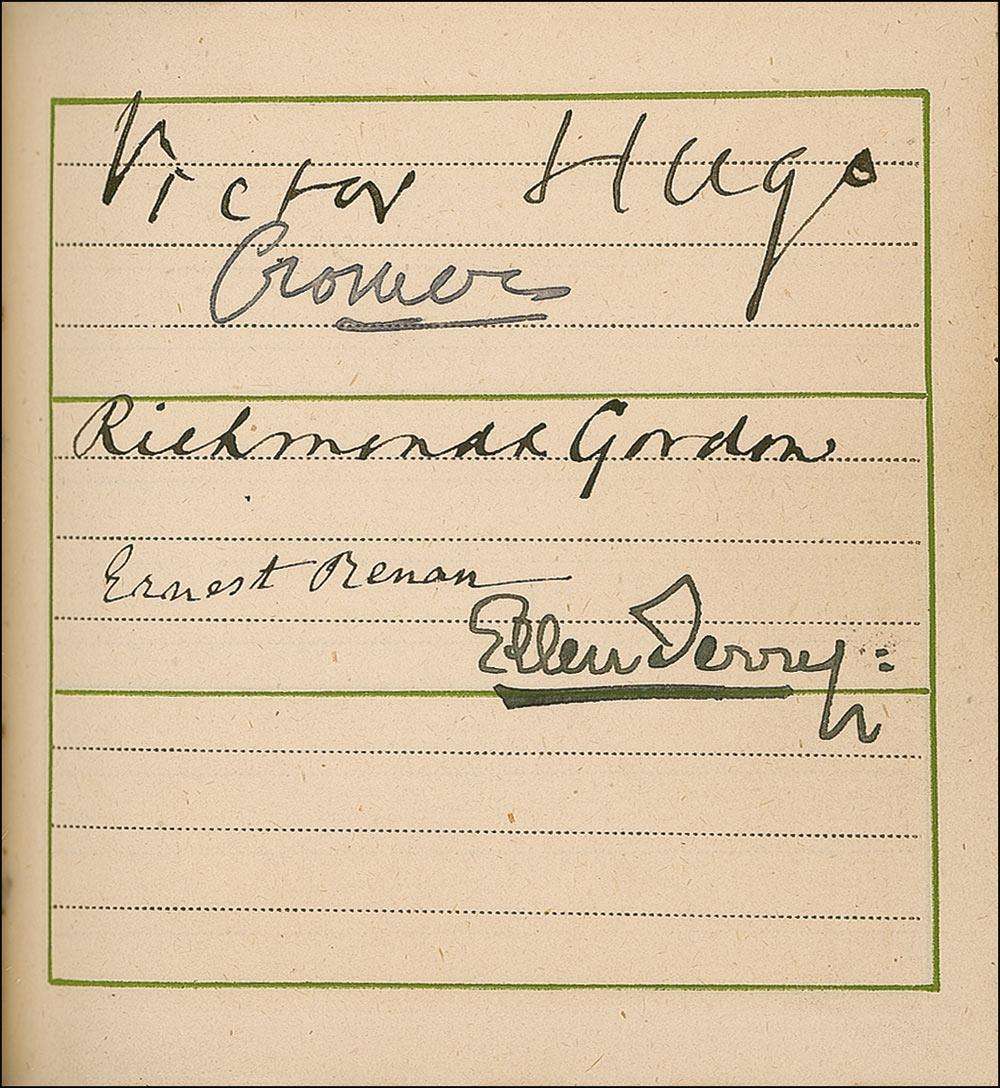 Victor Hugo
Cromer
Richmond & Gordon
Ernest Renan
Ellen Terry: